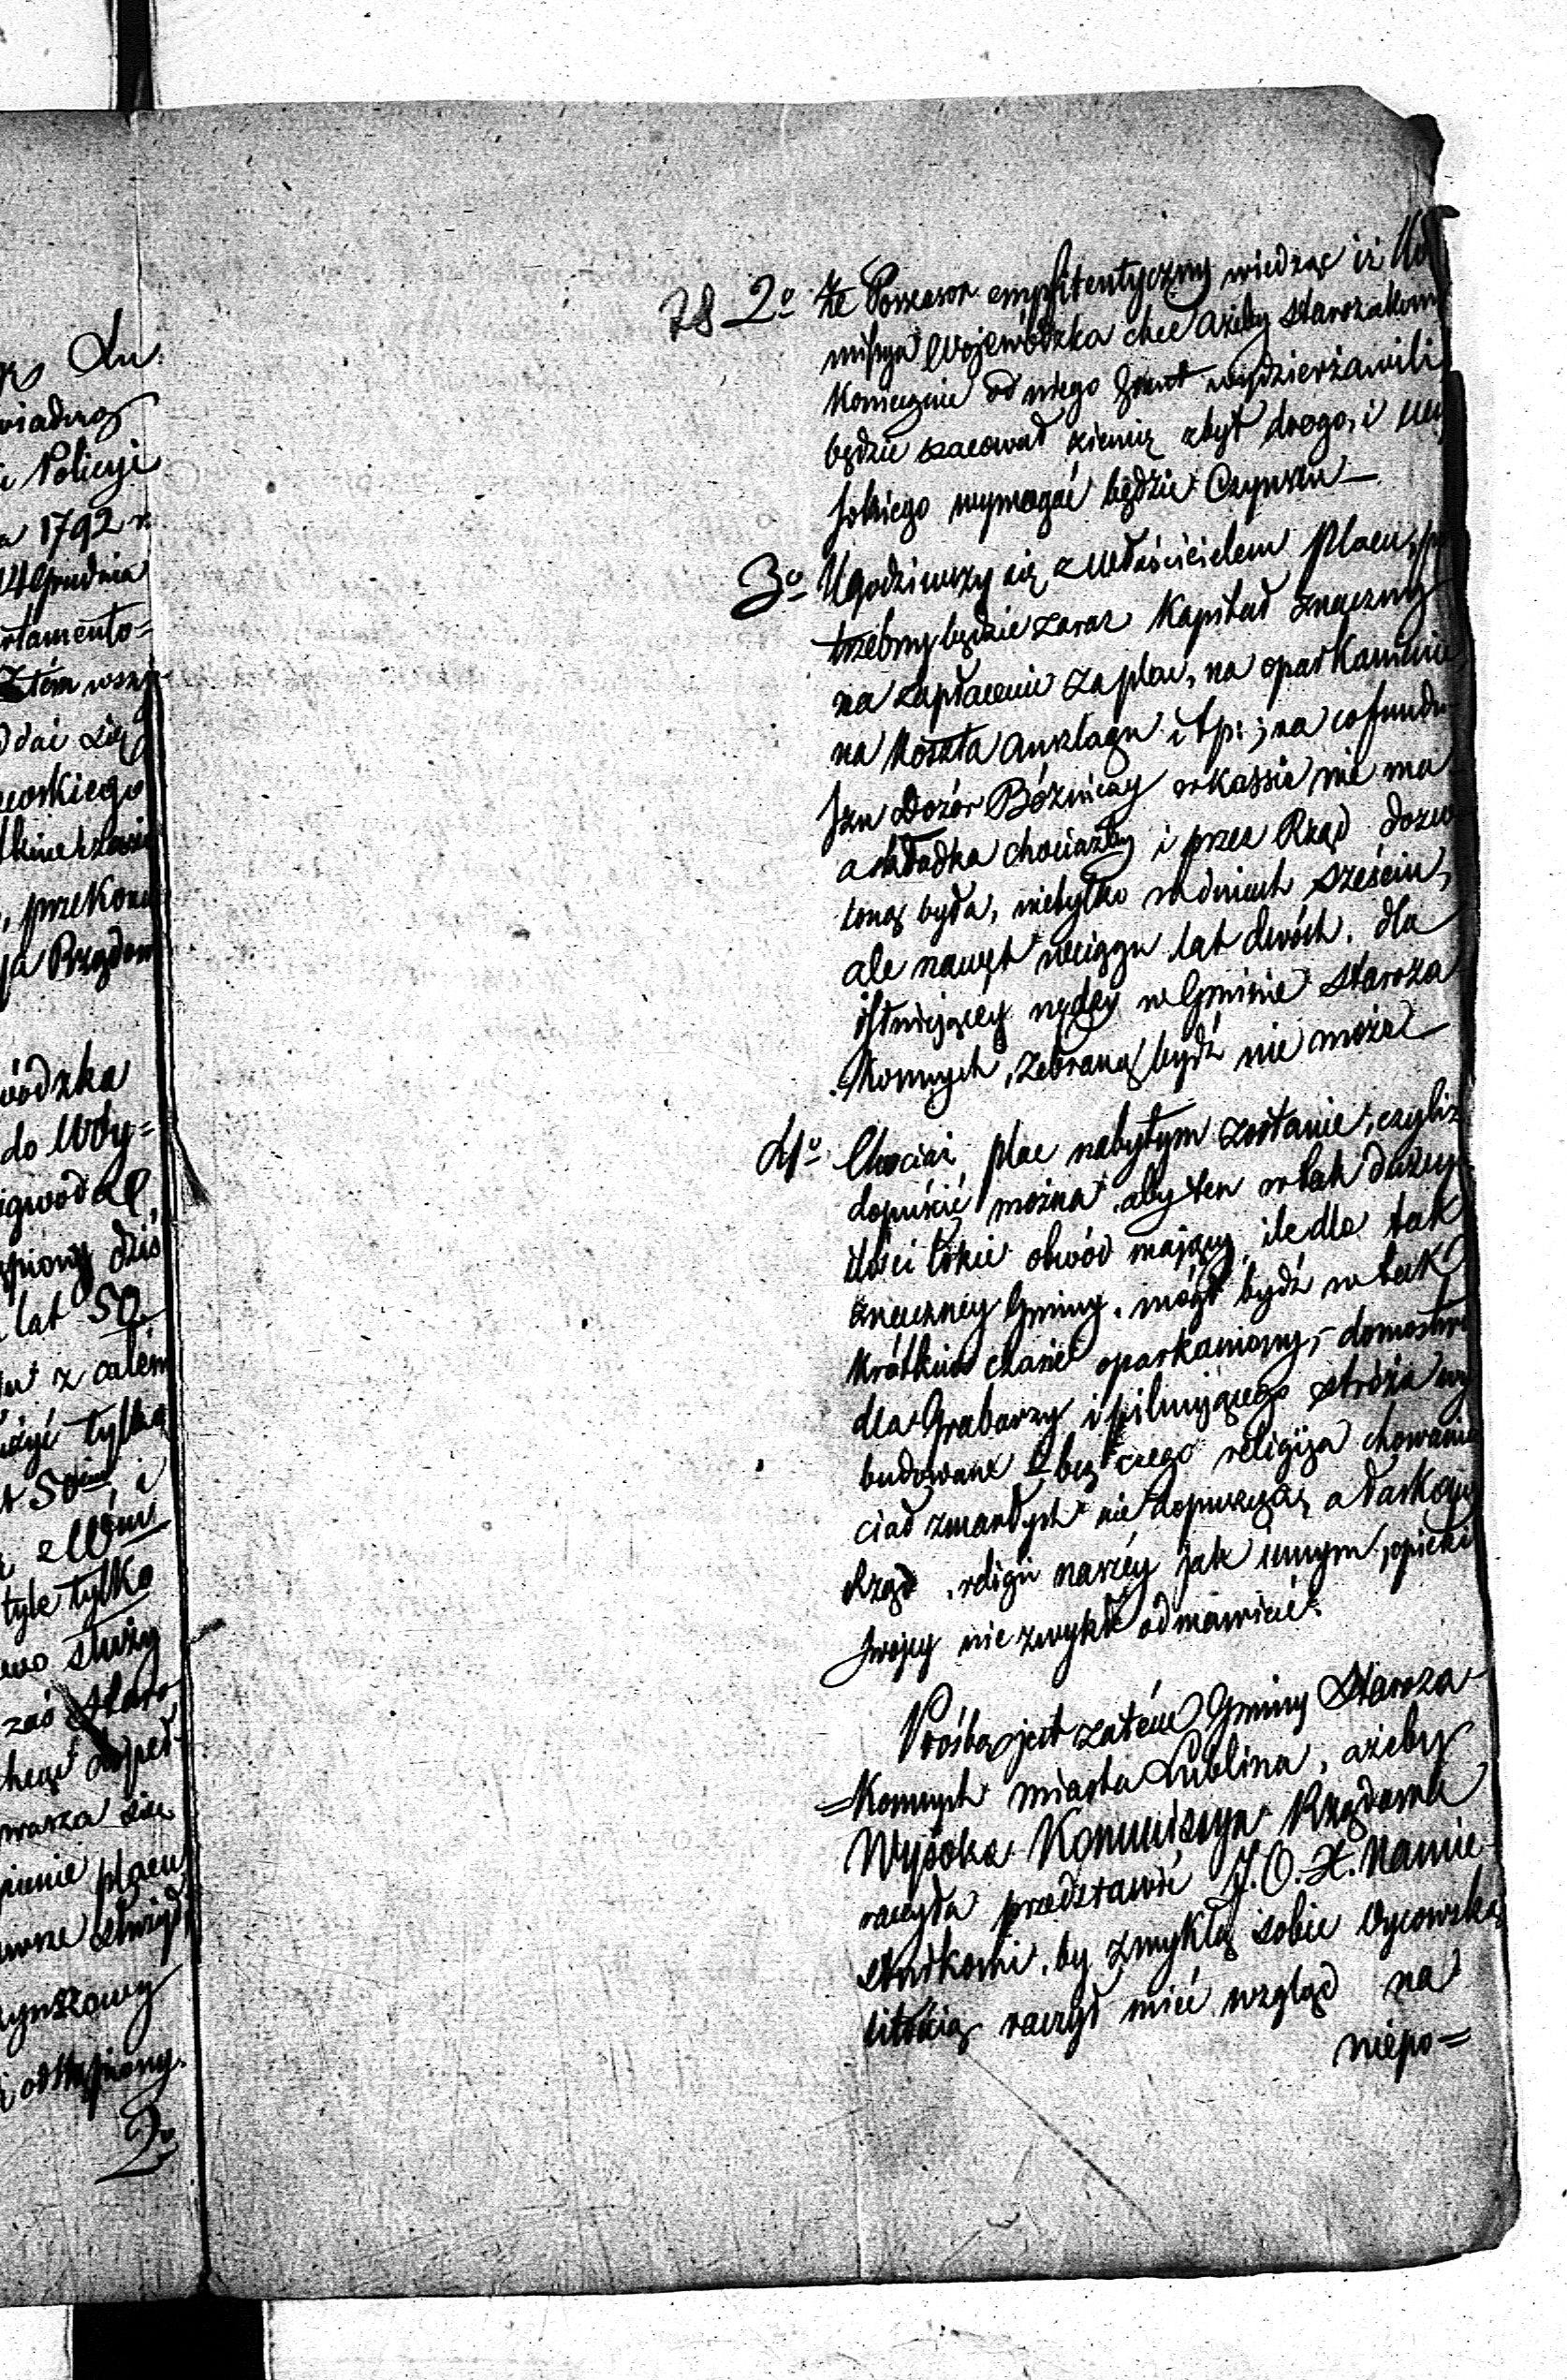 r Lu
wiadug
i Policyi
a 1792 r.
14 Grudnia
rtamento=
Ztém wszy-
ddać się

, przekona
ja Rządow
wódzka
do Wdy=
igwodzę
piony dziś
lat 50
z całém
tylko
t 50ciu, i
tyle tylko
wo służy
zaś Staro
chcąc
warza się
pienie placu

ynszowy
i odstąpiony.
2o
78 2o że Possessor emphiteutyczny wiedząc iż Ko
missya Wojewódzka chce ażeby Starozakonni
koniecznie od niego grunt wydzierżawili
będzie szacował ziemię zbyt drogo, i wy
sokiego wymagać będzie Czynszu—
3o Ugodziwszy się z Właścicielem placu, po
trzebny będzie zaraz Kapitał znaczny
na zapłacenie za plac, na oparkanienie
na koszta anszlagu i tp: ; na co fundu
szu Dozór Bóżniczy w kassie nie ma
a składka chociażby i przez Rząd dozwo
loną była, nietylko w dniach sześciu,
ale nawet w ciągu lat dwóch, dla
istniejącey nędzy w Gminie Staroza
konnych, zebraną bydź nie może—
4o Chociaż plac nabytym zostanie, czyliż
dopuścić można, aby ten w tak dużey
ilości łokci obwód mający, ile dla tak
znaczney Gminy, mógł bydź w tak
krótkim czasie oparkaniony, – domostwo
dla Grabarzy i pilnującego stróża wy
budowane – bez czego religija chowania
ciał zmarłych nie dopuszcza, a łaskawy
Rząd, religii naszéy jak innym, opieki
swojey nie zwykł odmawiać.
Prośbą jest zatém Gminy Staroza-
=konnych miasta Lublina, ażeby
Wysoka Kommissya Rządowa
raczyła przedstawić J. O. X. Namie-
stnikowi, by zwykłą sobie Oycowską
litością raczył mieć wzgląd na
niepo=